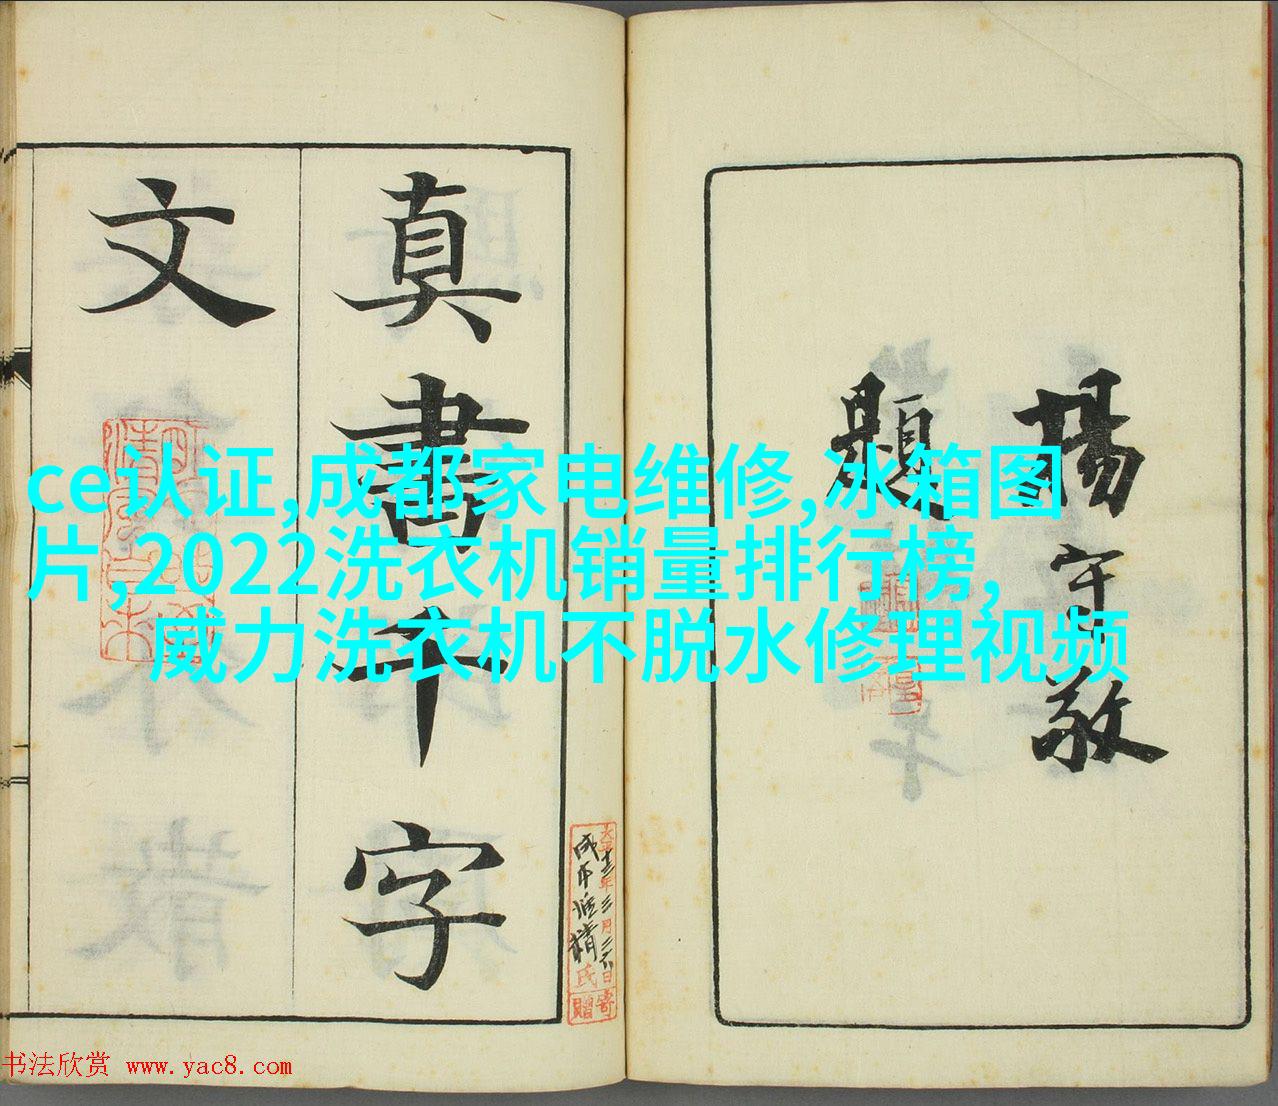 楊守敬
題
真書千字
文
ce认证,成都家电维修,冰箱图
片,2022洗衣机销量排行榜,
威力洗衣机不脱水修理视频
书法欣赏 www.yac8.com